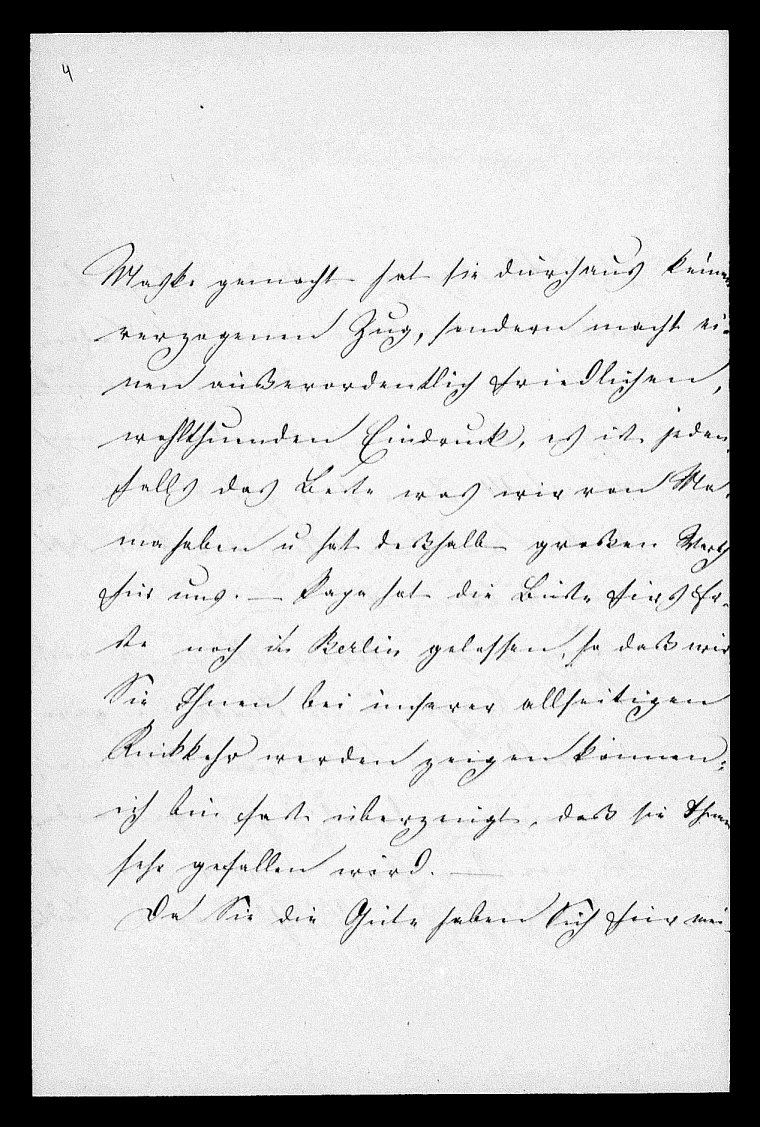 4
Maske gemacht hat sie durchaus keinen
verzogenen Zug, sondern macht ei-
nen außerordentlich friedlichen,
wohlthuenden Eindruck, es ist jeden-
falls das Beste was wir von Ma-
ma haben u hat deßhalb großen Werth
für uns. — Papa hat die Büste fürs Er-
ste noch in Berlin gelassen, so daß wir
Sie Ihnen bei unserer allseitigen
Rückkehr werden zeigen können,
ich bin fast überzeugt, daß sie Ihnen
sehr gefallen wird. —
Da Sie die Güte haben Sich für mei-